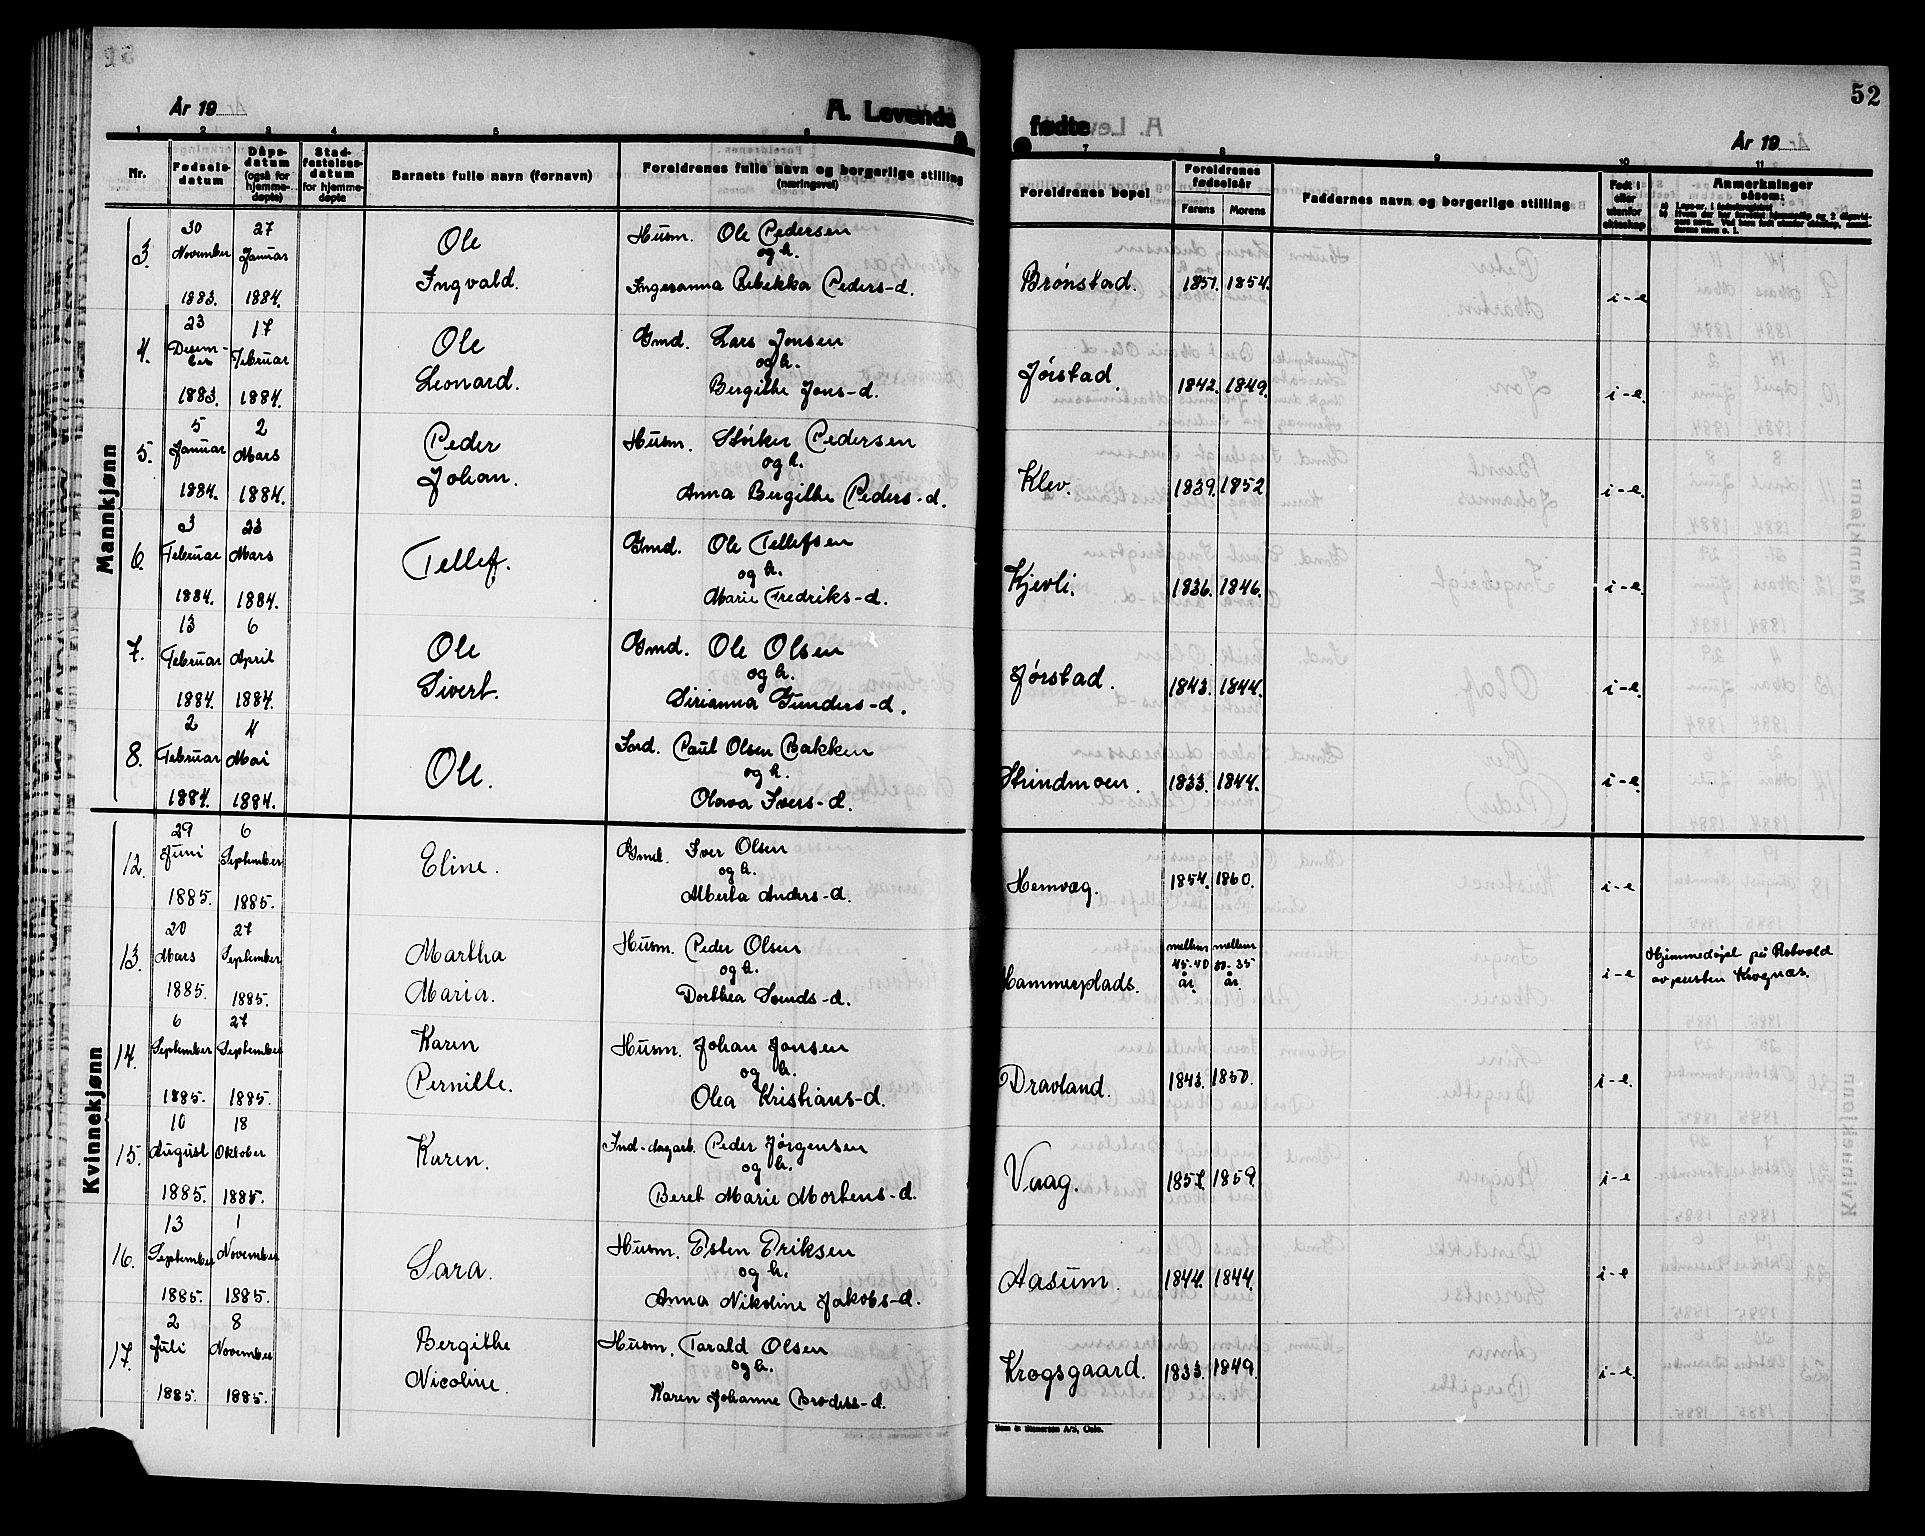 52
År 19
A. Levende
fødte
År 19
1 2 3 4 5 6 7 8 9 10 11
Nr.
Fødsels-
datum
Dåps-
datum
(også for
hjemme-
døpte)
Stad-
festelses-
datum
for hjemme-
døpte
Barnets fulle navn (fornavn)
Foreldrenes fulle navn og borgerlige stilling
(næringsvei)
Foreldrenes bopel
Foreldrenes
fødselsår
Farens Morens
Faddernes navn og borgerlige stilling
Født i
eller
utenfor
ekteskap
Anmerkninger
såsom:
Mannkjønn
3. 30 November 1883. 27 Januar 1884. Ole Ingvald. Husm. Ole Pedersen og h. Ingeranna Rebekka Peders-d. Brønstad. 1851. 1854. i-e.
4. 23 Desem-ber 1883. 17 Februar 1884. Ole Leonard. Gmd. Lars Jonsen og h. Bergithe Jons-d. Jørstad. 1842. 1849. i-e.
5. 5 Januar 1884. 2 Mars 1884. Peder Johan. Husm. Størker Pedersen og h. Anna Bergithe Peders-d. Klev. 1839. 1852 i-e.
6. 3 Februar 1884. 23 Mars 1884. Tellef. Gmd. Ole Tellefsen og h. Marie Fredriks-d. Kjevli. 1836. 1846. i-e.
7. 13 Februar 1884. 6 April 1884. Ole Sivert. Gmd. Ole Olsen og h. Sirianna Gunders-d. Jørstad. 1843. 1844. i-e.
8. 2 Februar 1884. 4 Mai 1884. Ole. Ind. Paul Olsen Bakken og h. Olava Ivers-d. Strindmoen. 1833. 1844. i-e.
Kvinnekjønn
12. 29 Juni 1885. 6 September 1885. Eline. Gmd. Iver Olsen og h. Alberta Anders-d. Hemvæg. 1854. 1860. i-e
13. 20 Mars 1885. 27 September 1885. Martha Maria. Husm. Peder Olsen og h. Dorthea -d. Hammerplads. mellem 45-40 år. mellem 30-35 år. i-e Hjemmedøpt på av presten
14. 6 September 1885. 27 September 1885. Karen Pernille. Husm. Johan Jonsen og h. Olea Kristians-d. Dravland. 1843. 1850. i-e.
15. 10 August 1885. 18 Oktober 1885. Karen. Ind-dagarb. Peder Jørgensen og h. Beret Marie Mortens-d. Vaag. 1857. 1859. i-e
16. 13 September 1885. 1 November 1885. Sara. Husm. Esten Eriksen og h. Anna Nikoline Jakobs-d. Aasum. 1844. 1844. i-e
17. 2 Juli 1885. 8 November 1885. Bergithe Nicoline. Husm. Tarald Olsen og h. Karen Johanne -d. Krogsgaard. 1833. 1849. i-e.
Sem & Stenersen A/S, Oslo.